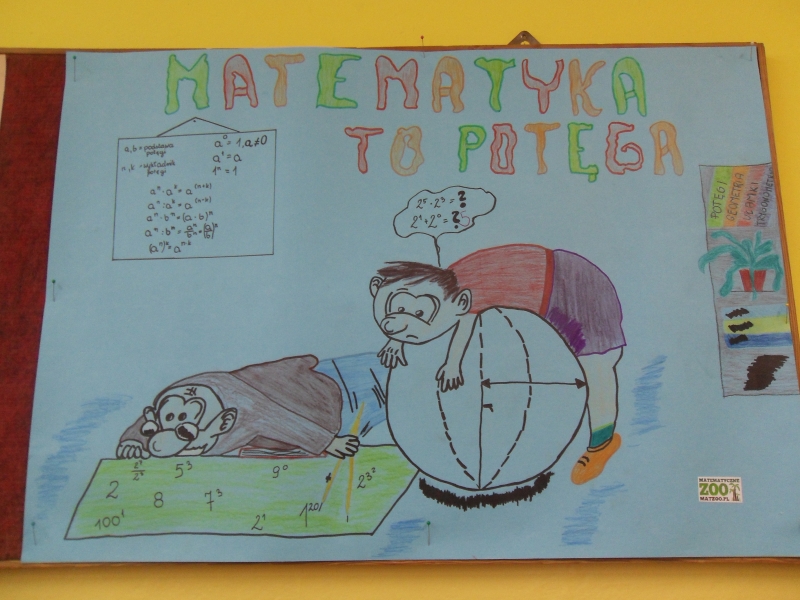 MATEMATYKA
TO POTĘGA
a, b = podstawa
potęgi
n, k = wykładnik
potęgi
a⁰ = 1, a≠0
a¹ = a
1ⁿ = 1
aⁿ · aᵏ = a⁽ⁿ⁺ᵏ⁾
aⁿ : aᵏ = a⁽ⁿ⁻ᵏ⁾
aⁿ · bⁿ = (a · b)ⁿ
aⁿ : bⁿ = aⁿ/bⁿ = (a/b)ⁿ
(aⁿ)ᵏ = aⁿ·ᵏ
2⁵ · 2³ = ?
2¹ + 2⁰ = ?
POTĘGI
GEOMETRIA
UŁAMKI
TRYGONOMETRIA
5³
9⁰
2
8
7³
23²
100¹
2¹
1²⁰
MATEMATYCZNE
ZOO
MATZOO.PL